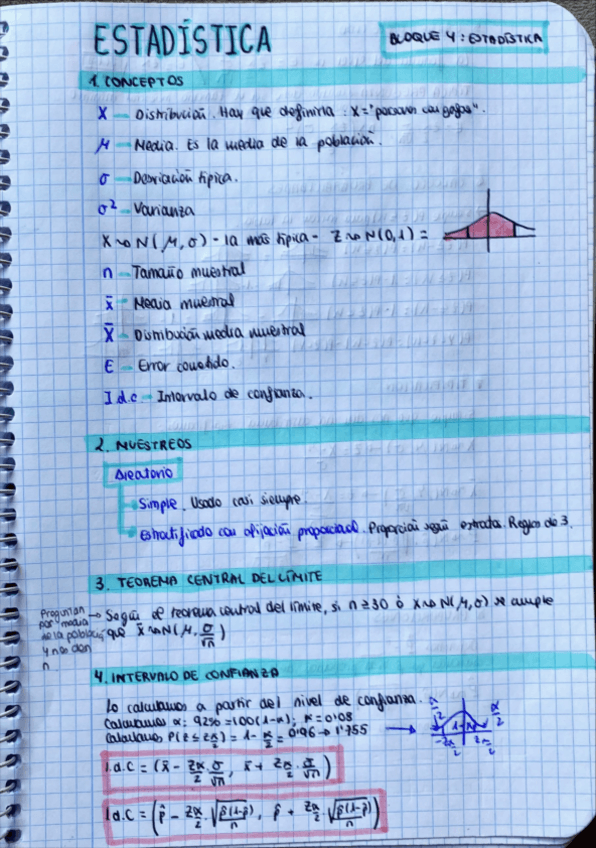 ESTADÍSTICA
BLOQUE 4: ESTADÍSTICA
1. CONCEPTOS
X — Distribución. Hay que definirla: X = "personas con gafas".
μ — Media. Es la media de la población.
σ — Desviación típica.
σ² — Varianza
X ~ N(μ, σ) - la más típica - Z ~ N(0,1) =
n — Tamaño muestral
x̄ — Media muestral
X̄ — Distribución media muestral
E — Error cometido.
I.d.c. — Intervalo de confianza.
2. MUESTREOS
Aleatorio
Simple. Usado casi siempre.
Estratificado con afijación proporcional. Proporción según estratos. Reglas de 3.
3. TEOREMA CENTRAL DEL LÍMITE
Preguntan por media de la población y nos dan n
→ Según el teorema central del límite, si n ≥ 30 ó X ~ N(μ, σ) se cumple
que x̄ ~ N(μ, σ/√n)
4. INTERVALO DE CONFIANZA
Lo calculamos a partir del nivel de confianza.
Calculamos α: 92% = 100(1-α); α = 0'08
Calculamos P(Z ≤ Zα/2) = 1 - α/2 = 0'96 → 1'755
α/2 1-α α/2
-Zα/2 Zα/2
I.d.C = (x̄ - Zα/2 · σ/√n, x̄ + Zα/2 · σ/√n)
I.d.C = (p̂ - Zα/2 · √(p̂(1-p̂)/n), p̂ + Zα/2 · √(p̂(1-p̂)/n))